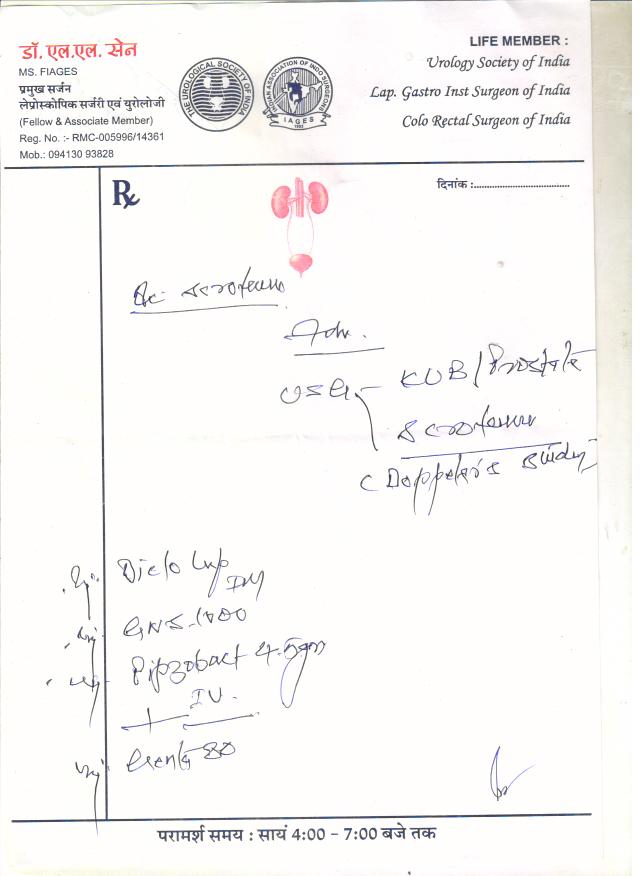 डॉ. एल.एल. सेन
MS. FIAGES
प्रमुख सर्जन
लेप्रोस्कोपिक सर्जरी एवं युरोलोजी
(Fellow & Associate Member)
Reg. No. :- RMC-005996/14361
Mob.: 094130 93828
THE UROLOGICAL SOCIETY OF INDIA
INDIAN ASSOCIATION OF INDO SURGEONS
IAGES
1993
LIFE MEMBER :
Urology Society of India
Lap. Gastro Inst Surgeon of India
Colo Rectal Surgeon of India
Rx
दिनांक :....................................
Ac. scroteum
Adv.
USG - KUB/Prostate
Scroteum
c Doppeler's Study
Inj. Diclo IM
Inj. GNS-1000
Inj. Pipzobact 4.5gm
IV.
+
Inj. Genta 80
परामर्श समय : सायं 4:00 – 7:00 बजे तक